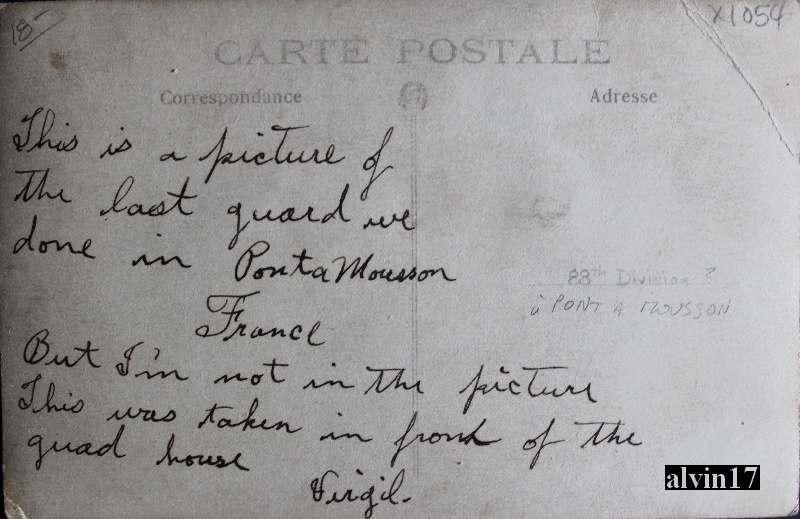 18-
X1054
CARTE POSTALE
Correspondance
Adresse
This is a picture of
the last guard we
done in Ponta Mousson
France
But I'm not in the picture
This was taken in front of the
guad house
Virgil.
88th Division ?
à PONT A MOUSSON
alvin17